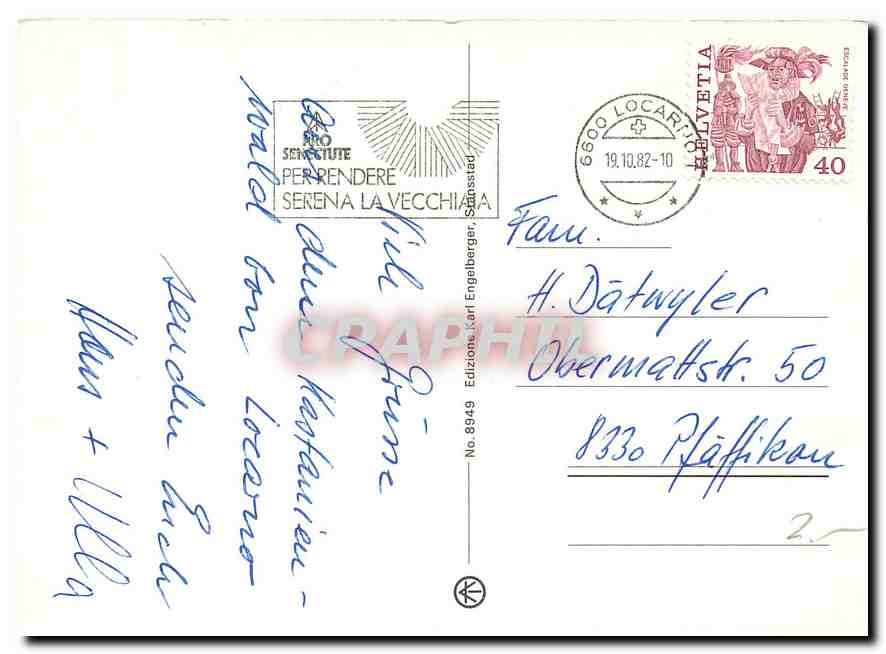 Viele Grüsse
aus dem Kastanien-
wald von Locarno
senden Euch
Hans + Ulla
PRO
SENECTUTE
PER RENDERE
SERENA LA VECCHIAIA
6600 LOCARNO
19.10.82-10
HELVETIA
ESCALADE GENÈVE
40
No. 8949 Edizione Karl Engelberger, Stansstad
Fam.
H. Dätwyler
Obermattstr. 50
8330 Pfäffikon
2.–
CRAPHIL